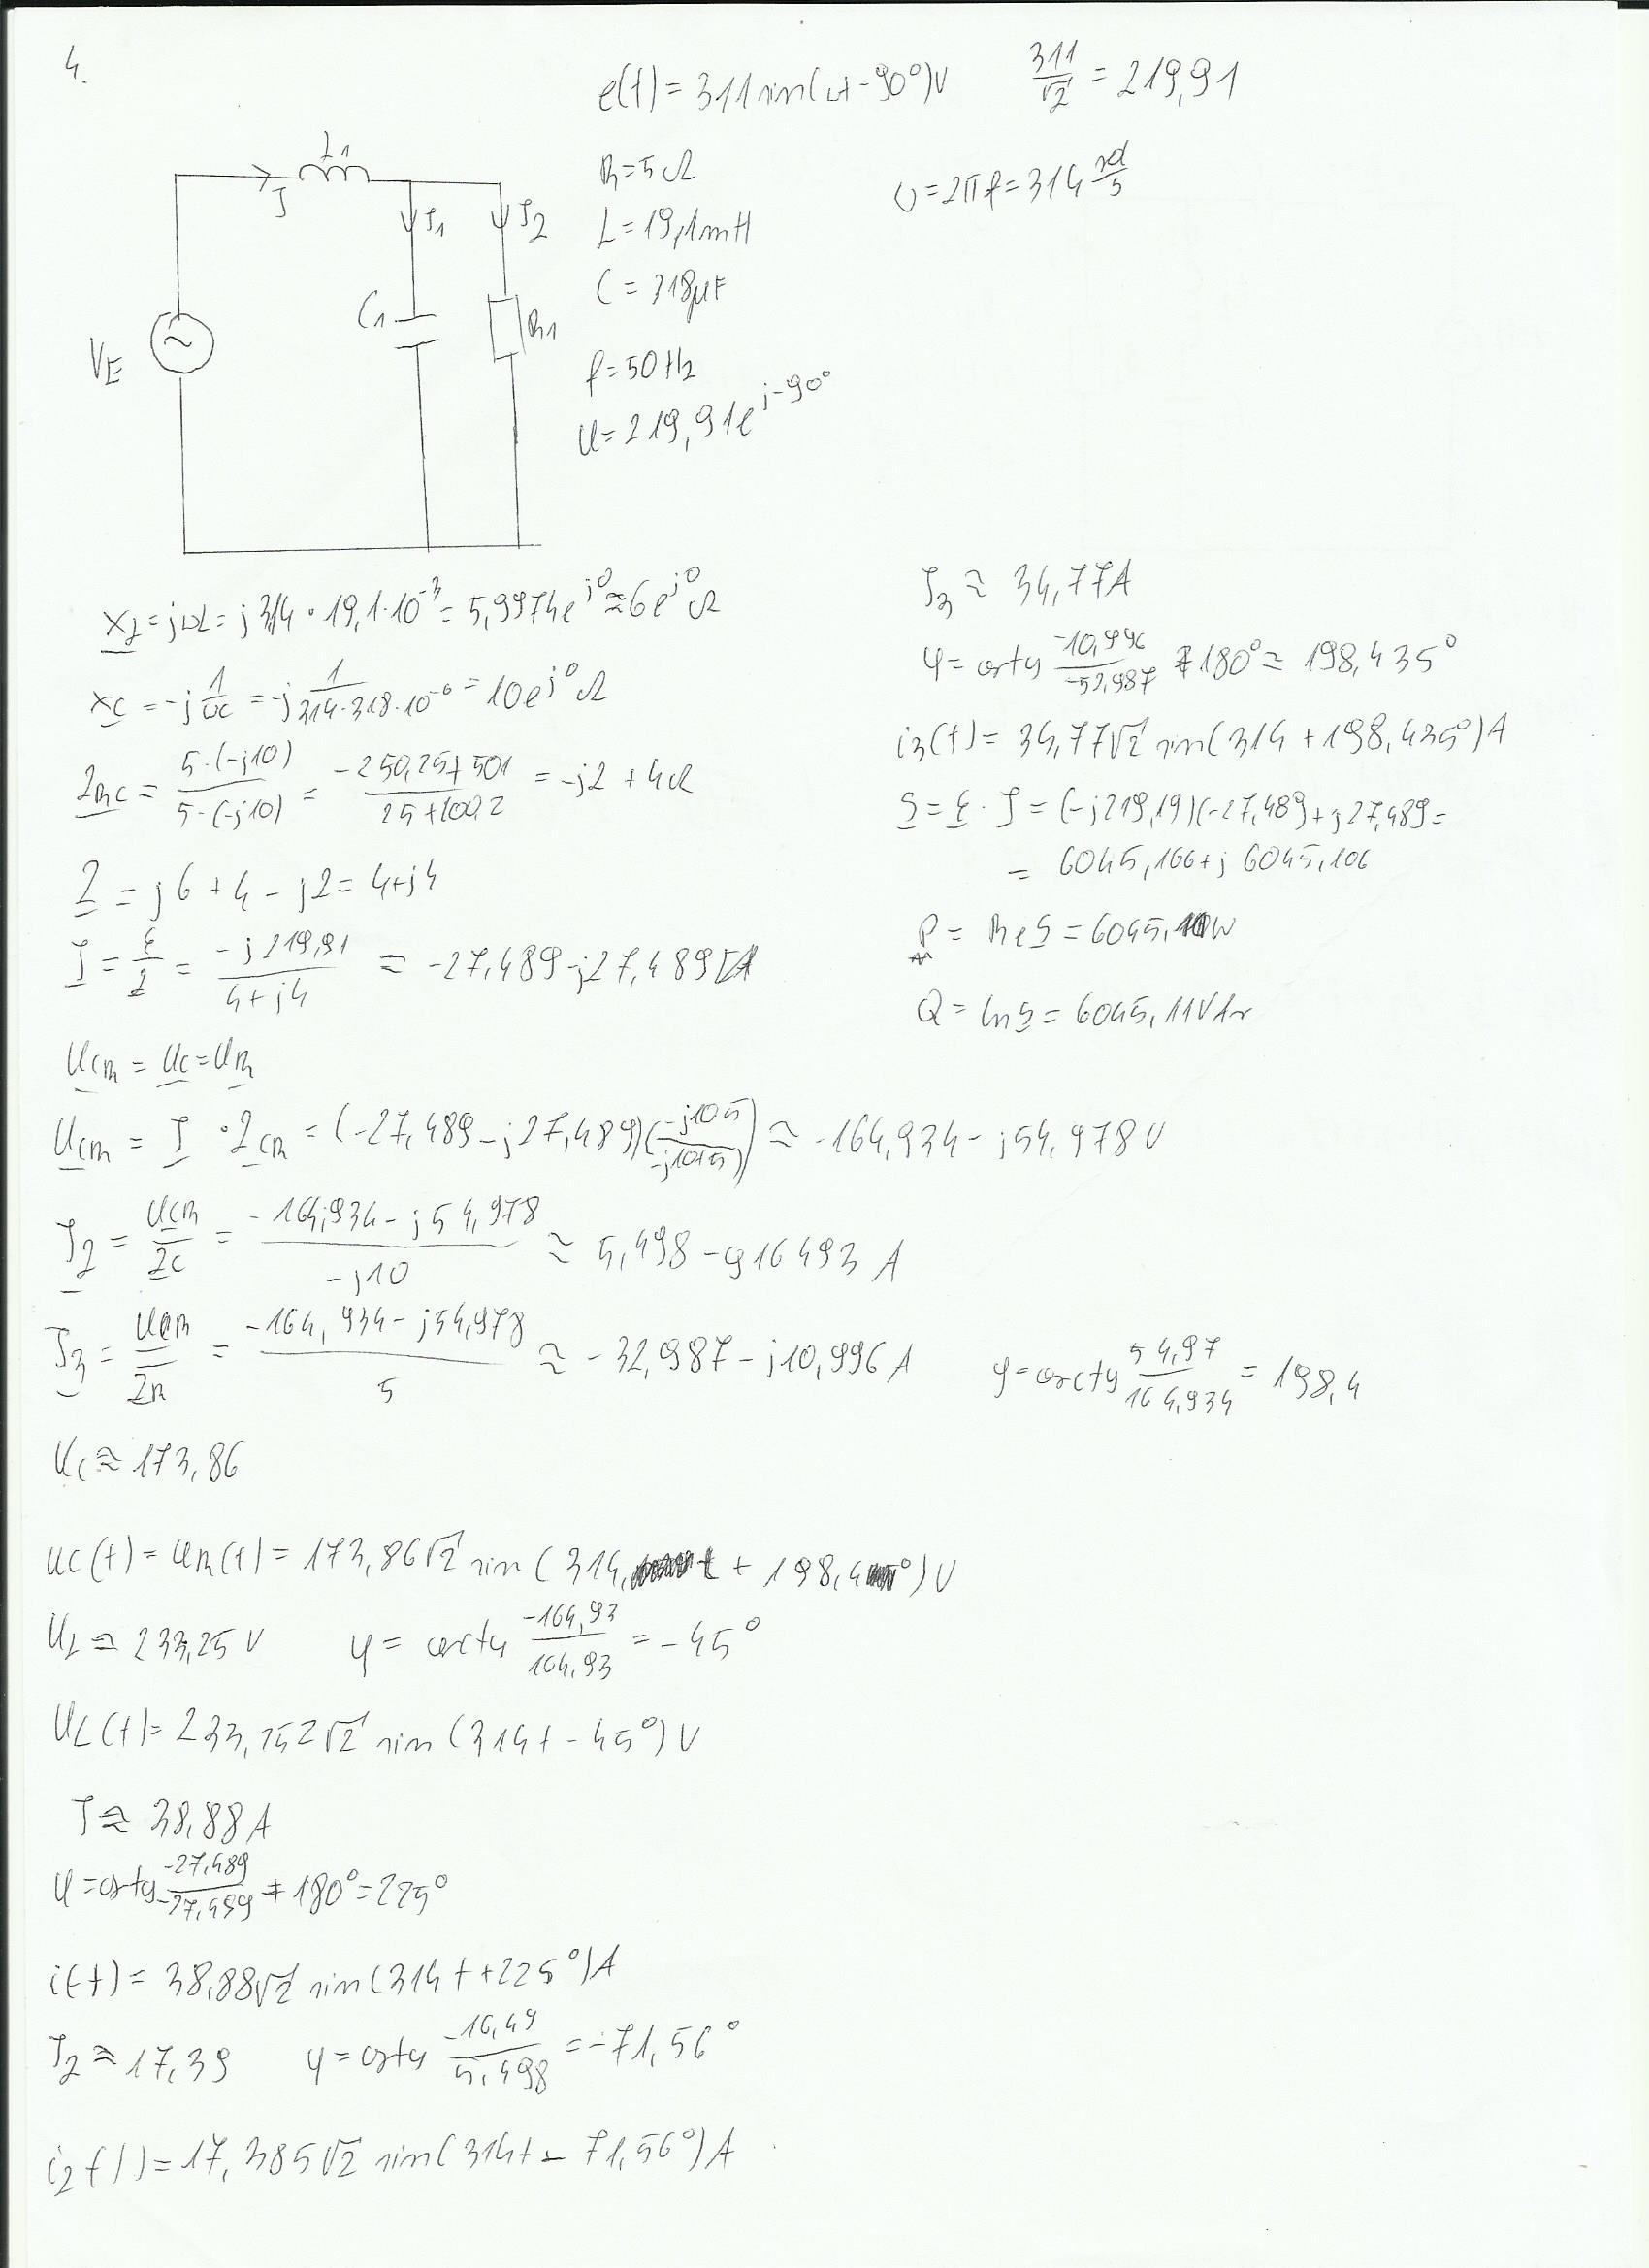 4.
e(t) = 311 sin(ωt - 90°)V
311/√2 = 219,91
R = 5Ω
ω = 2πf = 314 rd/s
L = 19,1mH
C = 318μF
f = 50Hz
U = 219,91e^j-90°
L1
I
I1
I2
C1
R1
VE
XL = jωL = j314 · 19,1·10^-3 = 5,9974e^j0 ≈ 6e^j0 Ω
XC = -j 1/ωC = -j 1/314·318·10^-6 = 10e^j0 Ω
ZRC = 5·(-j10)/5-(-j10) = = -j2 + 4Ω
Z = j6 + 4 - j2 = 4+j4
I = E/Z = -j219,91/4+j4 ≈ -27,489 - j27,489 A
UCR = UC = UR
UCR = I · ZCR = (-27,489 - j27,489)(-j10·5/-j10+5) ≈ -164,934 - j54,978 V
I2 = UCR/ZC = -164,934 - j54,978/-j10 ≈ 5,498 - j16493 A
I3 = UCR/ZR = -164,934 - j54,978/5 ≈ -32,987 - j10,996 A
φ = arctg 54,97/164,934 = 198,4
UC ≈ 173,86
uC(t) = uR(t) = 173,86√2 sin(314 t + 198,4°)V
UL ≈ 233,25 V
φ = arctg -164,93/164,93 = -45°
UL(t) = 233,252√2 sin(314t - 45°) V
I ≈ 38,88 A
φ = arctg -27,489/-27,489 + 180° = 225°
i(t) = 38,88√2 sin(314t + 225°)A
I2 ≈ 17,39
φ = arctg -16,49/5,498 = -71,56°
i2(t) = 17,385√2 sin(314t - 71,56°)A
I3 ≈ 34,77A
φ = arctg -10,996/-32,987 + 180° ≈ 198,435°
i3(t) = 34,77√2 sin(314 + 198,435°)A
S = E · I = (-j219,19)(-27,489 + j27,489 =
= 6045,166 + j 6045,106
P = Re S = 6045,10W
Q = Im S = 6045,11 VAr